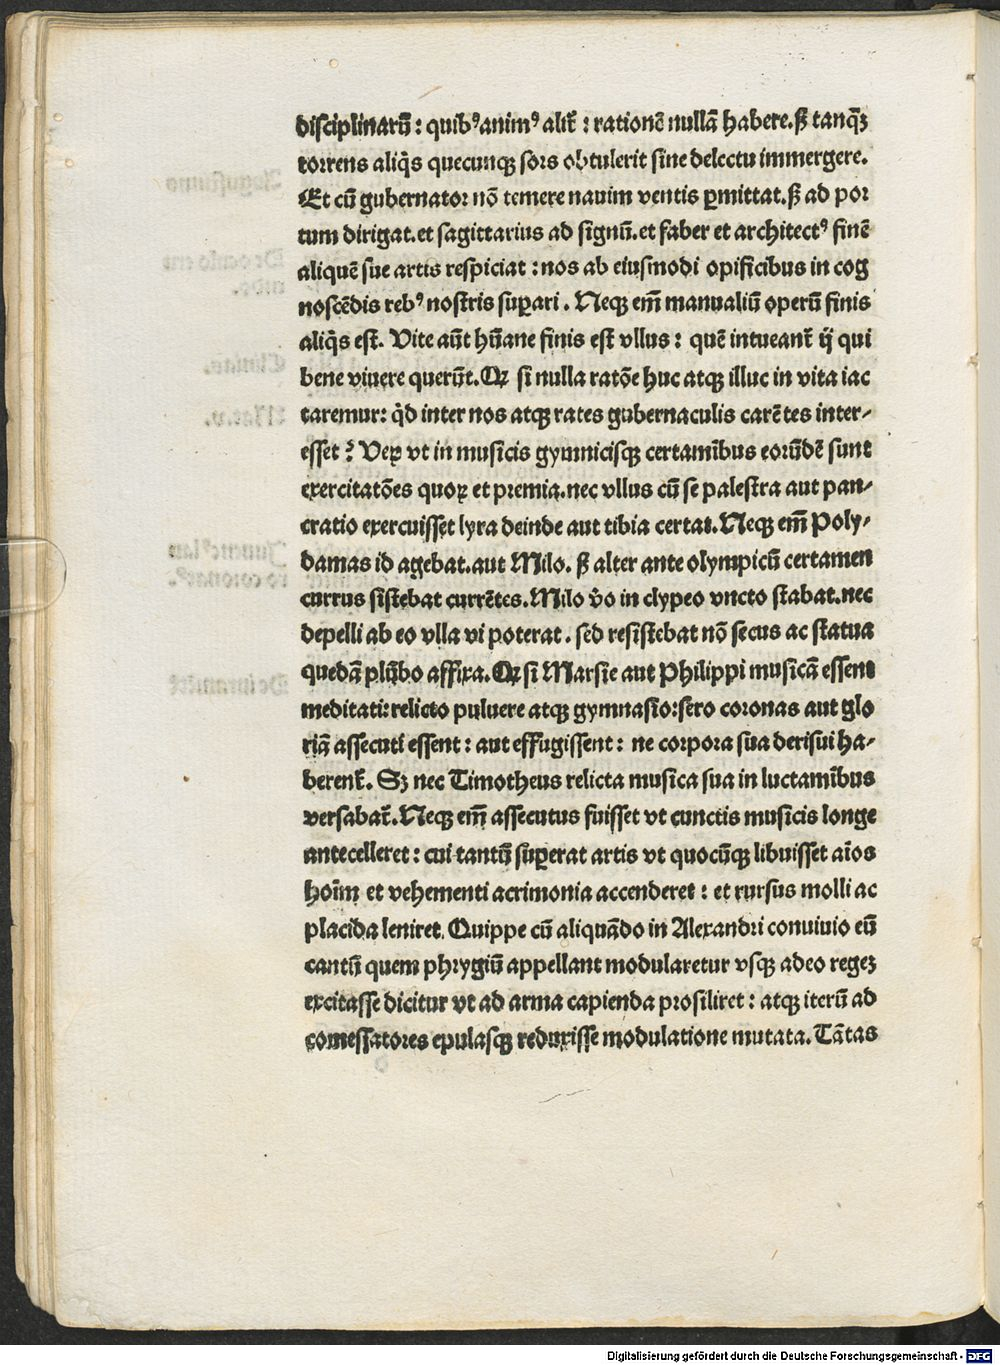 disciplinarū : quibꝰ animꝰ alit᷑ : rationē nullā habere. ß tanq̄ꝫ
torrens aliq̇s quecunqꝫ sors obtulerit sine delectu immergere.
Et cū gubernator nō temere nauim ventis ꝑmittat. ß ad por
tum dirigat. et sagittarius ad signū. et faber et architectꝰ finē
aliquē sue artis respiciat : nos ab eiusmodi opificibus in cog
noscēdis rebꝰ nostris suꝑari . Neqꝫ em̄ manualiū operū finis
aliq̇s est. Vite aūt hūane finis est vllus : quē intueant᷑ ij qui
bene viuere querūt. Qꝛ si nulla ratōe huc atqꝫ illuc in vita iac
taremur: q̇d inter nos atqꝫ rates gubernaculis carētes inter⸗
esset ? Veꝝ vt in musicis gymnicisqꝫ certamībus eorūdē sunt
exercitatōes quoꝝ et premia. nec vllus cū se palestra aut pan⸗
cratio exercuisset lyra deinde aut tibia certat. Neqꝫ em̄ Poly⸗
damas id agebat. aut Milo. ß alter ante olympicū certamen
currus sistebat currētes. Milo v̊o in clypeo vncto stabat. nec
depelli ab eo vlla vi poterat . sed resistebat nō secus ac statua
quedā plūbo affixa. Qꝛ si Marsie aut Philippi musicā essent
meditati: relicto puluere atqꝫ gymnasio: sero coronas aut glo
riā assecuti essent : aut effugissent : ne corpora sua derisui ha⸗
berent᷑. Sꝫ nec Timotheus relicta musica sua in luctamībus
versabat᷑. Neqꝫ em̄ assecutus fuisset vt cunctis musicis longe
antecelleret : cui tantū suꝑerat artis vt quocūqꝫ libuisset aīos
hoīm et vehementi acrimonia accenderet : et rursus molli ac
placida leniret. Quippe cū aliquādo in Alexandri conuiuio eū
cantū quem phrygiū appellant modularetur vsqꝫ adeo regeꝫ
excitasse dicitur vt ad arma capienda prosiliret : atqꝫ iterū ad
comessatores epulasqꝫ reduxisse modulatione mutata. Tātas
Digitalisierung gefördert durch die Deutsche Forschungsgemeinschaft - DFG